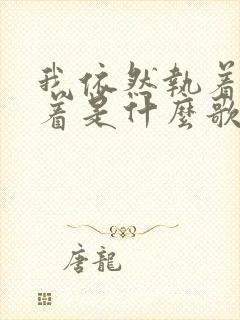 我依然執着
着是什麼歌
唐龍